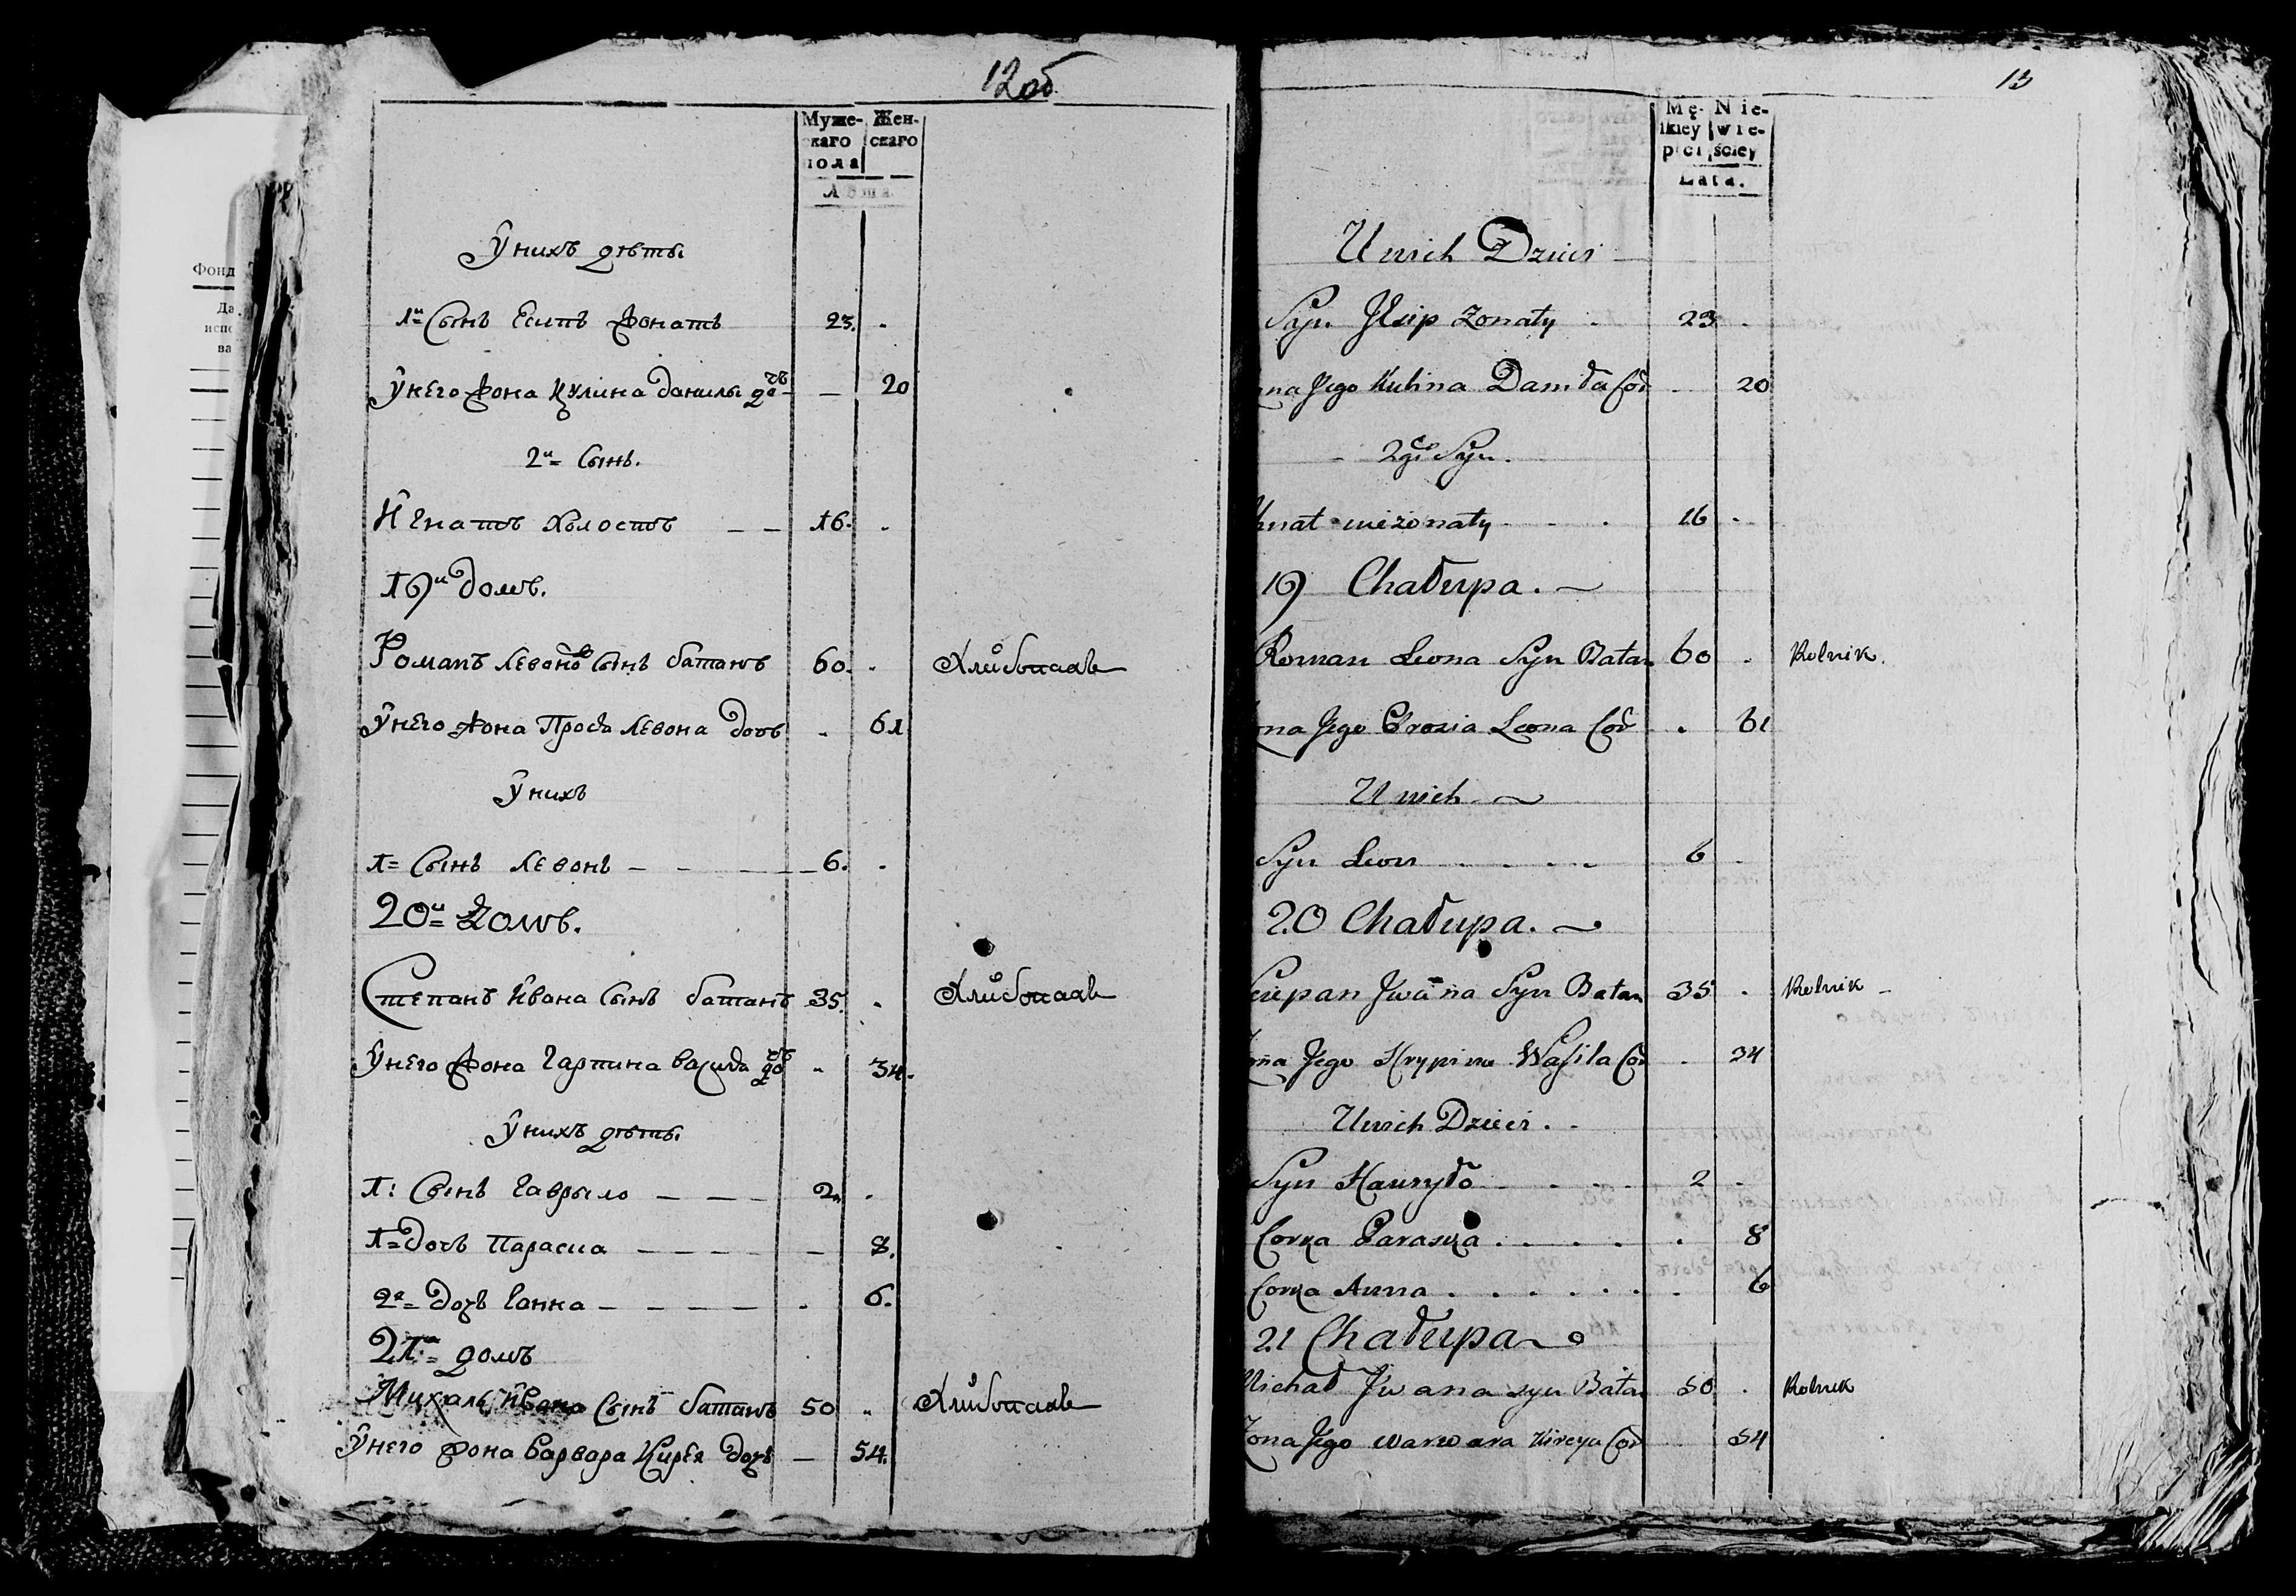 12об
Муже- Жен-
скаго скаго
пола
Лѣта
Ѹнихъ дѣты
1й Сынъ Есипъ Жонатъ 23.
Ѹнего Жона Кулина данилы дочь — 20
2й Сынъ.
Игнатъ Холостъ — — 16.
19й домъ.
Романъ Левона Сынъ батанъ 60. Хлибопашъ
Ѹнего Жона Прося Левона дочь 61
Ѹнихъ
1= Сынъ Левонъ — — — 6.
20й домъ.
Степанъ Ивана Сынъ батанъ 35. Хлибопашъ
Ѹнего Жона Гарпина василя дочь 34.
Ѹнихъ дѣты
1: Сынъ Гаврыло — — — 2.
1= дочъ Параска — — — — — 8.
2я= дочъ Ганна — — — — 6.
21й= домъ
Михаль Ивана Сынъ батанъ 50 Хлибопашъ
Ѹнего Жона Варвара Кирѣя дочъ — 54.
13
Mę- Nie-
skiey wie-
płci ściey
Lata.
U nich Dzieci
Syn Jesip Zonaty 23
ona Jego Kulina Daniła Cor 20
2gi Syn.
hnat niezonaty 16
19 Chałupa.
Roman Leona Syn Batan 60 Rolnik.
ona Jego Prosia Leona Cor 61
U nich
Syn Leon 6
20 Chałupa.
Sciepan Jwana Syn Batan 35 Rolnik
ona Jego Hrypina Wasila Cor 34
U nich Dzieci.
Syn Hauryło 2
Corka Paraska 8
Corka Anna 6
21 Chałupa
Michał Jwana syn Batan 50 Rolnik
Zona Jego warwara Kireya Cor 54